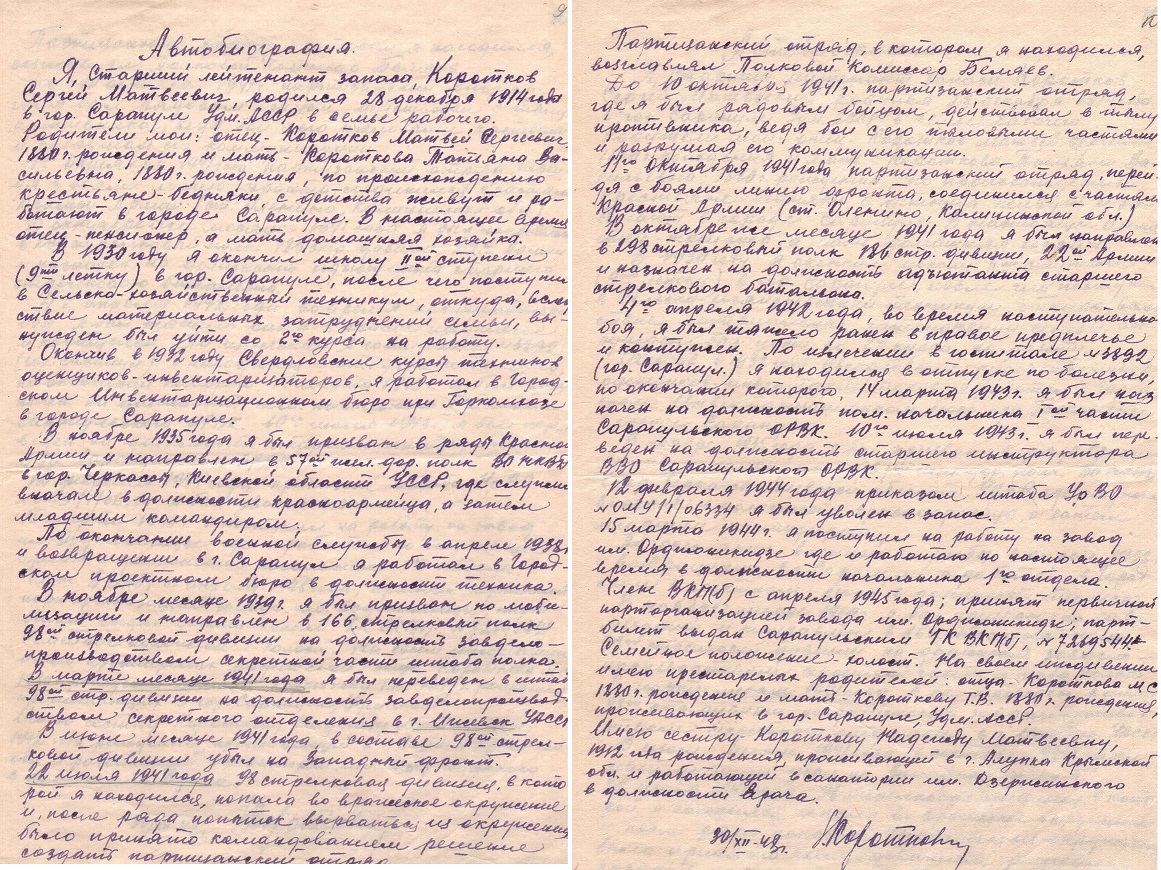 9
Автобиография.
Я, Старший лейтенант запаса Коротков
Сергей Матвеевич, родился 28 декабря 1914 года
в гор. Сарапуле Удм. АССР в семье рабочего.
Родители мои: отец - Коротков Матвей Сергеевич,
1880 г. рождения и мать - Короткова Татьяна Ва-
сильевна, 1880 г. рождения, по происхождению
крестьяне-бедняки, с детства живут и ра-
ботают в городе Сарапуле. В настоящее время
отец-пенсионер, а мать домашняя хозяйка.
В 1930 году я окончил школу II ой ступени
(9ти летку) в гор. Сарапуле, после чего поступил
в Сельско-хозяйственный техникум, откуда, вслед-
ствие материальных затруднений семьи, вы-
нужден был уйти со 2го курса на работу.
Окончив в 1932 году Свердловские курсы техников
оценщиков-инвентаризаторов, я работал в Город-
ском Инвентаризационном бюро при Горкомхозе
в городе Сарапуле.
В ноябре 1935 года я был призван в ряды Красной
Армии и направлен в 57ой жел. дор. полк ВО НКВД
в гор. Черкассы, Киевской области УССР, где служил
вначале в должности красноармейца, а затем
младшим командиром.
По окончании военной службы в апреле 1938г.
и возвращении в г. Сарапул я работал в Город-
ском проектном бюро в должности техника.
В ноябре месяце 1939г. я был призван по моби-
лизации и направлен в 166 стрелковый полк
98ой стрелковой дивизии на должность завдело-
производством секретной части штаба полка.
В марте месяце 1941 года я был переведен в штаб
98ой стр. дивизии на должность завделопроизвод-
ством секретного отделения в г. Ижевск УАССР
В июне месяце 1941 года в составе 98ой стрел-
ковой дивизии убыл на Западный фронт.
22 июля 1941 года 98 стрелковая дивизия, в кото-
рой я находился, попала во вражеское окружение
и, после ряда попыток вырваться из окружения
было принято командованием решение
создать партизанский отряд.
10
Партизанский отряд, в котором я находился,
возглавлял Полковой Комиссар Беляев.
До 10 октября 1941 г. партизанский отряд,
где я был рядовым бойцом, действовал в тылу
противника, ведя бои с его тыловыми частями
и разрушая его коммуникации.
11го Октября 1941 года партизанский отряд, перей-
дя с боями линию фронта, соединился с частями
Красной Армии (ст. Оленино, Калининской обл.)
В октябре же месяце 1941 года я был направлен
в 298 стрелковый полк 186 стр. дивизии, 22ой Армии
и назначен на должность адъютанта старшего
стрелкового батальона.
4го апреля 1942 года, во время наступательного
боя, я был тяжело ранен в правое предплечье
и контужен. По излечении в госпитале №3892
(гор. Сарапул.) я находился в отпуске по болезни,
по окончании которого, 14 марта 1943 г. я был наз-
начен на должность пом. начальника I ой части
Сарапульского ОРВК. 10го июля 1943 г. я был пере-
веден на должность старшего инструктора
ВВО Сарапульского ОРВК.
12 февраля 1944 года приказом штаба УрВО
№ОМУ/1/06334 я был уволен в запас.
15 марта 1944 г. я поступил на работу на завод
им. Орджоникидзе где и работаю по настоящее
время в должности начальника 1го отдела.
Член ВКП(б) с апреля 1945 года; принят первичной
парторганизацией завода им. Орджоникидзе; парт-
билет выдан Сарапульским ГК ВКП(б),
Семейное положение - холост. На своем иждивении
имею престарелых родителей: отца - Короткова М.С.
1880 г. рождения и мать Короткову Т.В. 1880 г. рождения,
проживающих в гор. Сарапуле, Удм. АССР.
Имею сестру - Короткову Надежду Матвеевну,
1912 года рождения, проживающей в г. Алупка Крымской
обл. и работающей в санатории им. Дзержинского
в должности врача.
30/XII-48г. Коротков